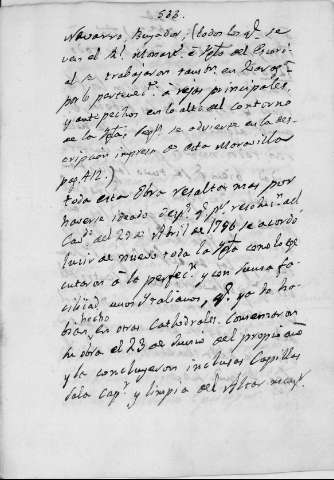 533.
Navarro, Buxador, (todos los q.e se
ven el R.l Monast.o è Ygl.a del Escori-
al se trabajaron tambn. en Zarag.a
por lo pertenec.te a rejas principales,
y antepechos en lo alto del contorno
de la Ygl.a, segn. se advierte en la des-
cripcion impresa de esta Maravilla
pag. 412.)
toda esta Obra resaltó mas por
haverse ideado desp.s q.e p.r resoluc.n del
Cav.do del 29 de Abril de 1786 se acordó
lucir de nuevo toda la Ygl.a como lo exe-
cutaron à la perfec.n y con suma fa-
cilidad unos Ytalianos, q.e ya lo ha-
bian hecho en otras Cathedrales. Comenzaron
la obra el 23 de Junio del propio año
y la concluyeron inclusas Capillas
Sala Cap.r y limpia del Altar may.r